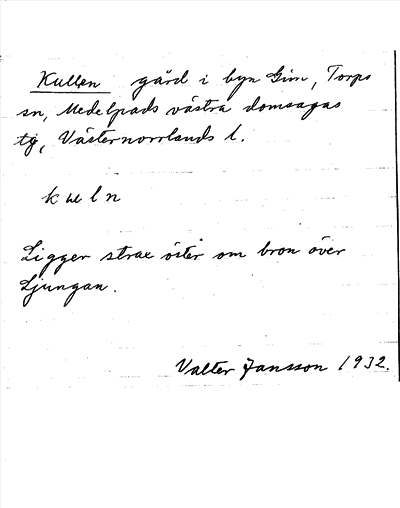 Kullen gård i byn Gim, Torps
sn, Medelpads västra domsagas
tg, Västernorrlands l.
Ligger strax öster om bron över
Ljungan.
Valter Jansson 1932.